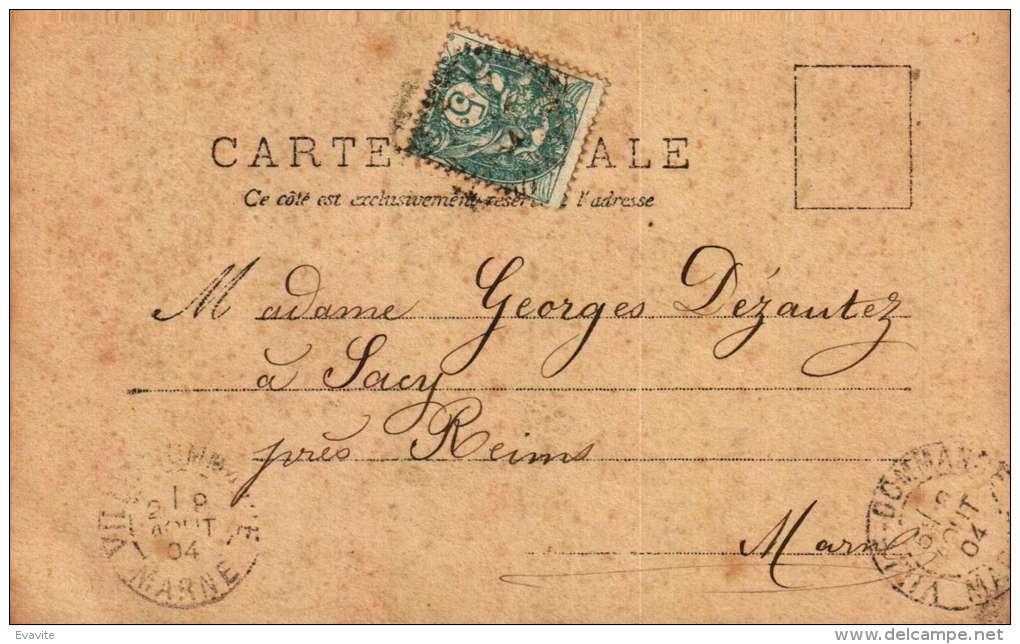 5
CARTE ALE
Ce côté est exclusivement réservé à l'adresse
Madame Georges Dézautez
à Sacy
près Reims
Marne
VILLE DOMMANGE
9
AOUT
04
MARNE
DOMMANGE
9
AOUT
04
Evavite
www.delcampe.net